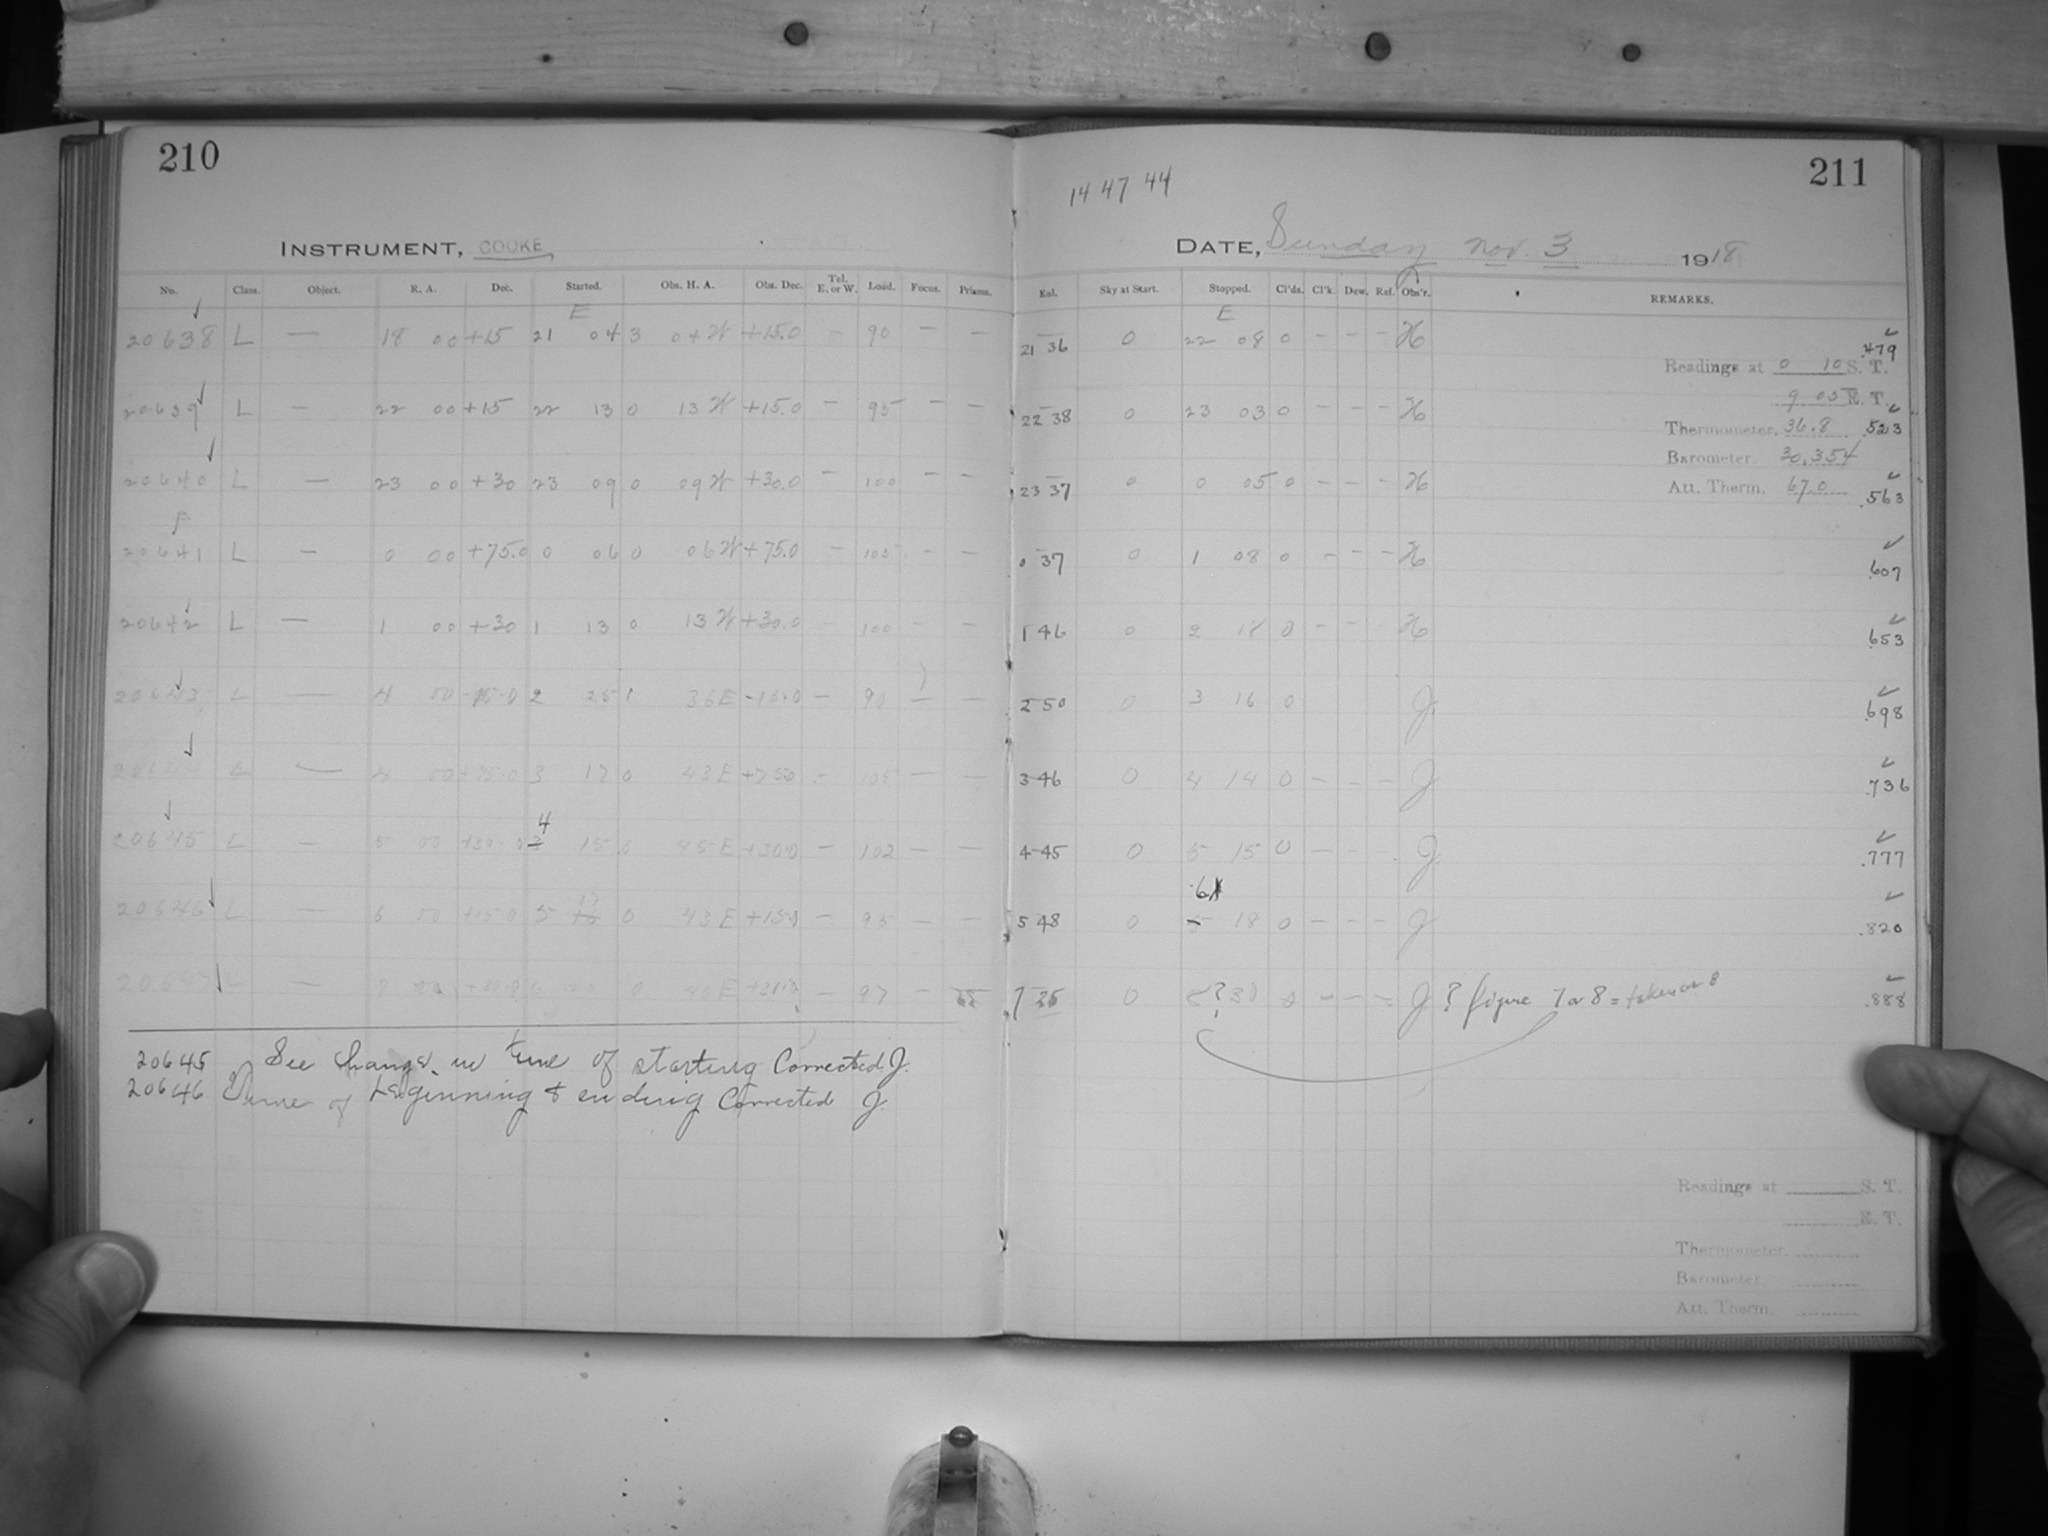 210
INSTRUMENT, COOKE
No. Class. Object. R. A. Dec. Started. Obs. H. A. Obs. Dec. Tel. E. or W. Load. Focus. Prisms.
E
20638 L — 18 00 +15 21 04 3 04 W +15.0 — 90 — —
20639 L — 22 00 +15 22 13 0 13 W +15.0 — 95 — —
20640 L — 23 00 +30 23 09 0 09 W +30.0 — 100 — —
20641 L — 0 00 +75.0 0 06 0 06 W +75.0 — 105 — —
20642 L — 1 00 +30 1 13 0 13 W +30.0 — 100 — —
20643 L — 4 00 -15.0 2 25 1 35 E -15.0 — 90 — —
— 00 +75.0 3 17 0 43 E +75.0 — 105 — —
4
20645 L — 5 00 +30.0 3 15 0 45 E +30.0 — 102 — —
20646 L — 6 00 +15.0 5 0 43 E +15.0 — 95 — —
— 0 40 E — 97 —
20645 See change in time of starting Corrected J.
20646 Time of beginning & ending Corrected J
211
14 47 44
DATE, Sunday Nov. 3 1918
Sky at Start. Stopped. Cl'ds. Cl'k. Dew. Ref. Obs'r. REMARKS.
E
21 36 0 22 08 0 — — — H .479
Readings at 0 10 S. T.
9 05 E. T.
22 38 0 23 03 0 — — — H
Thermometer, 36.8 .523
Barometer 30.354
23 37 0 0 05 0 — — — H
Att. Therm. 67.0 .563
0 37 0 1 08 0 — — — H .607
1 46 0 2 18 0 — — — H .653
2 50 0 3 16 0 J. .698
3 46 0 4 14 0 — — — J .736
4 45 0 5 15 0 — — — J .777
6
5 48 0 5 18 0 — — — J .820
7 0 — — — J ? figure 7 or 8 = taken as 8 .888
Readings at S. T.
E. T.
Thermometer
Barometer
Att. Therm.